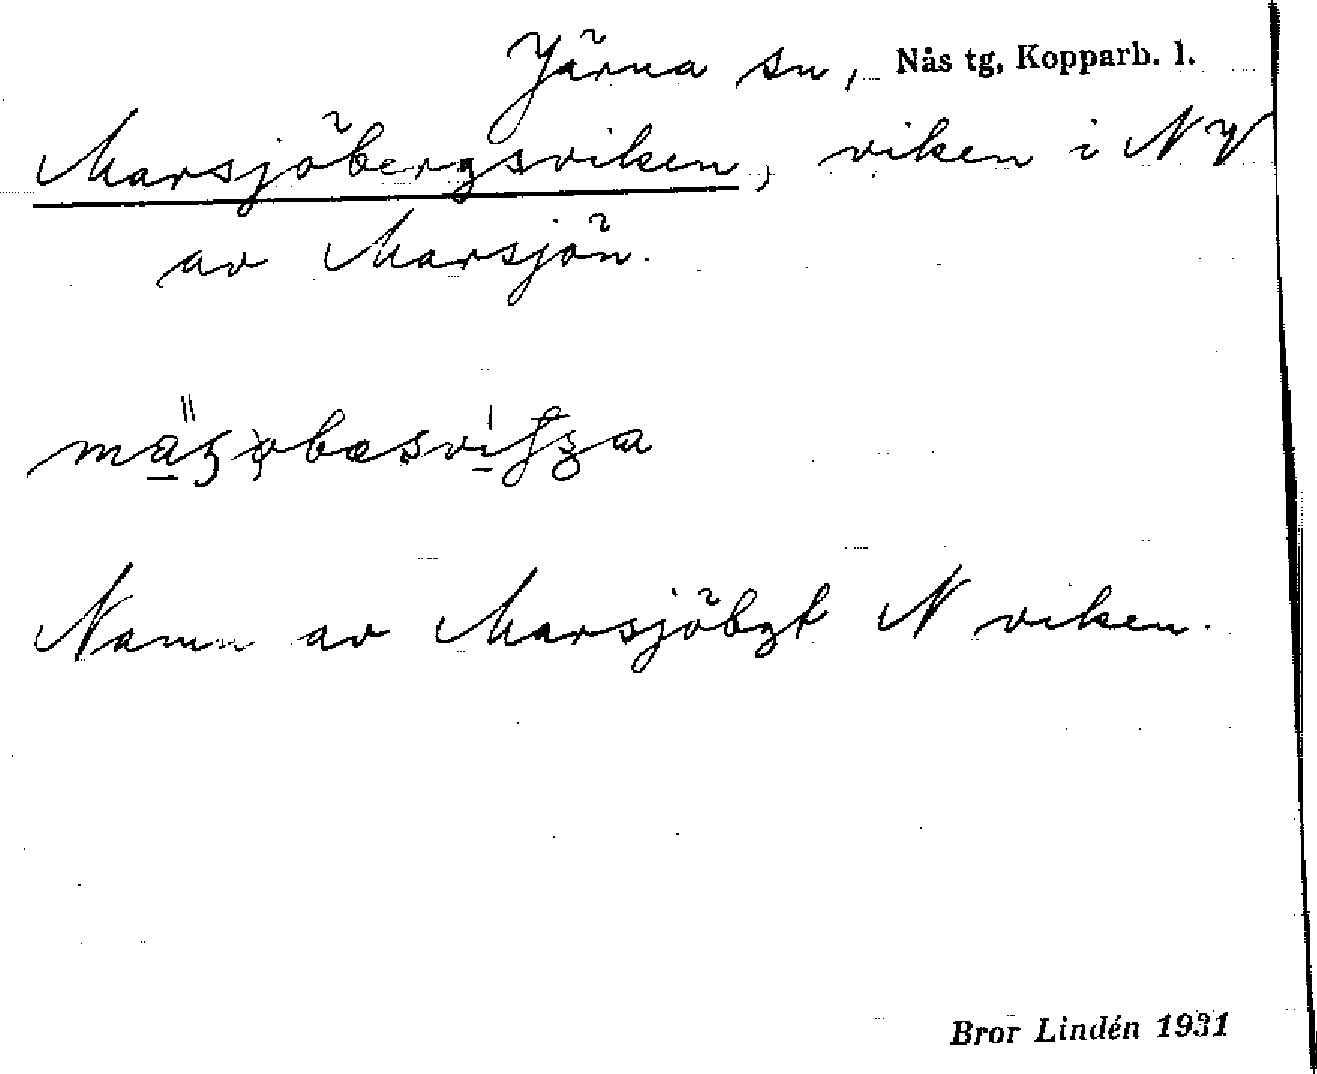 Järna sn, Nås tg, Kopparb. l.
Marsjöbergsviken, viken i NV
av Marsjön.
Namn av Marsjöbgt N viken.
Bror Lindén 1931